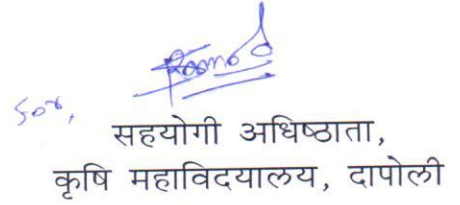 for,
सहयोगी अधिष्ठाता,
कृषि महाविदयालय, दापोली